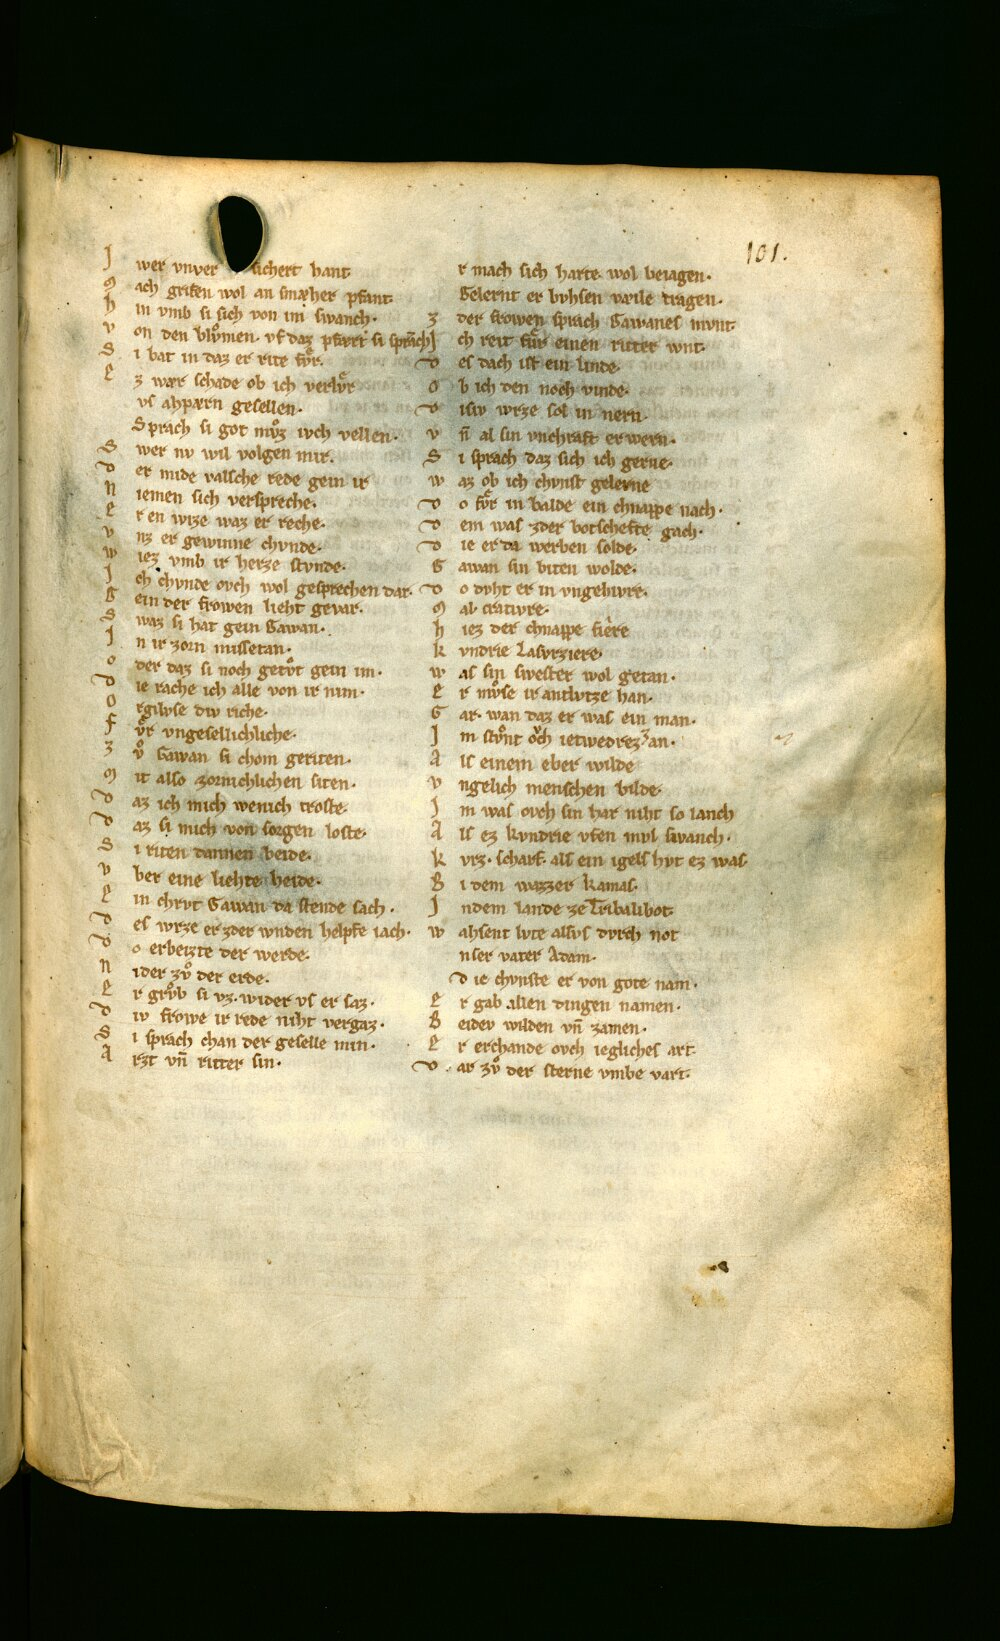 101.
J wer vnver sichert hant
M ach grifen wol an smæher pfant
h in vmb si sich von im swanch·
v on den blvͦmen· vf daz pfært si sprach
S i bat in daz er rite fvͤr·
E z wær schade ob ich verlvͤr
vs ahpærn gesellen·
Sprach si got mvͦz ivch vellen·
S wer nv wil volgen mir·
D er mide valsche rede gein ir
N iemen sich verspreche·
E r en wize waz er reche·
v nz er gewinne chvnde·
w iez vmb ir herze stvnde·
J ch chvnde ovch wol gesprechen dar·
G ein der frowen lieht gevar·
S waz si hat gein Gawan·
J n ir zorn missetan·
o der daz si noch getvͦt gein im·
D ie rache ich alle von ir nim·
O rgilvse div riche·
F vͦr vngesellichliche·
Z vͦ Gawan si chom geriten·
M it also zornichlichen siten·
D az ich mich wenich troste·
D az si mich von sorgen loste·
S i riten dannen beide·
v ber eine liehte heide·
E in chrvt Gawan da stende sach·
D es wrze er zder wnden helpfe iach·
D o erbeizte der werde·
N ider zvͦ der erde·
E r grvͦb si vz· wider vf er saz·
D iv frowe ir rede niht vergaz·
S i sprach chan der geselle min·
A rzt vn̄ ritter sin·
r mach sich harte wol beiagen·
Gelernt er bvhsen væile tragen·
Z der frowen sprach Gawanes mvnt
J ch reit fvͤr einen ritter wnt·
D es dach ist ein linde·
O b ich den noch vinde·
D isiv wrze sol in nern·
v n̄ al sin vnchraft erwern·
S i sprach daz sich ich gerne·
w az ob ich chvnst gelerne
D o fvͤr in balde ein chnappe nach·
D em was zder botschefte gach·
D ie er da werben solde·
G awan sin biten wolde·
D o dvht er in vngehivre·
M al creativre·
h iez der chnappe fiere
k vndrie Lasvrziere·
w as sin swester wol getan·
E r mvͦse ir antlvtze han·
G ar· wan daz er was ein man·
J m stvͦnt ovch ietwedrez zan·
A ls einem eber wilde
v ngelich menschen bilde·
J m was ovch sin har niht so lanch
A ls ez kvndrie vfen mvl swanch·
k vrz· scharf· als ein igels hvt ez was·
B i dem wazzer kamas·
J ndem lande ze Tribalibot
w ahsent lvte alsvs dvrch not
nser vater Adam·
Die chvnste er von gote nam·
E r gab allen dingen namen·
B eidev wilden vn̄ zamen·
E r erchande ovch iegliches art
D ar zvͦ der sterne vmbe vart·